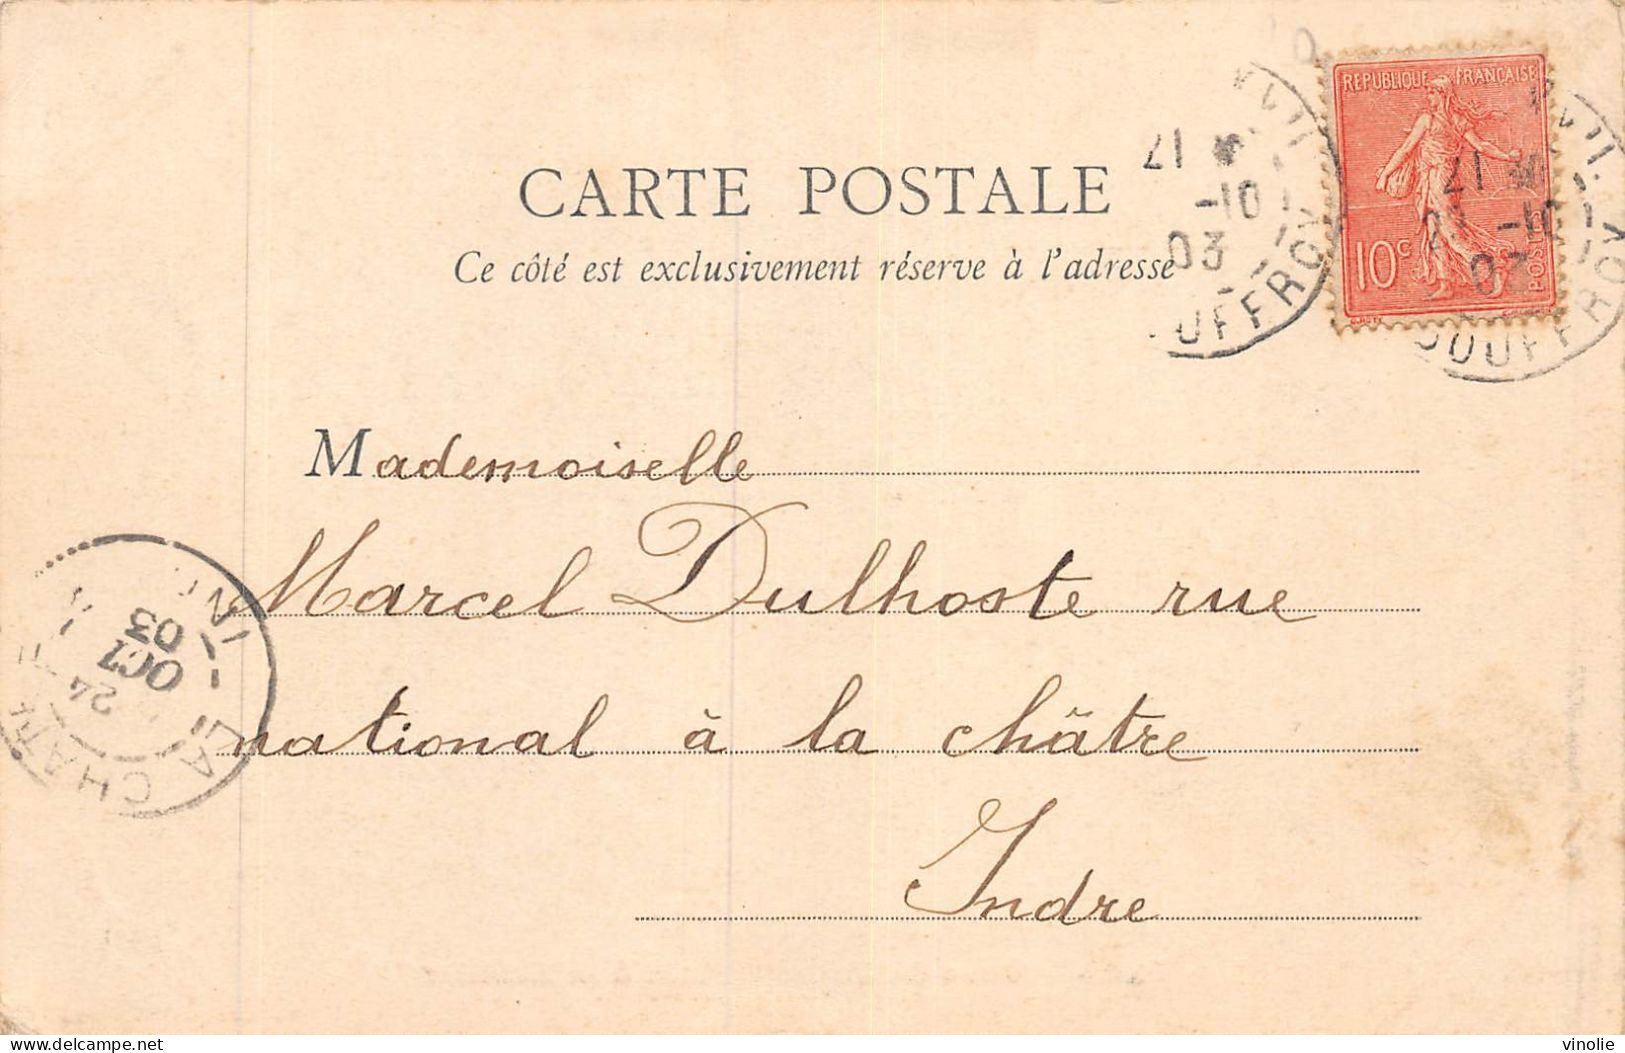 REPUBLIQUE FRANÇAISE
10c
POSTES
21
-10
03
OUFFROY
CARTE POSTALE
Ce côté est exclusivement réserve à l'adresse
Mademoiselle
Marcel Dulhoste rue
national à la châtre
Indre
LA CHATRE
24
OCT
03
delcampe.net
vinolie